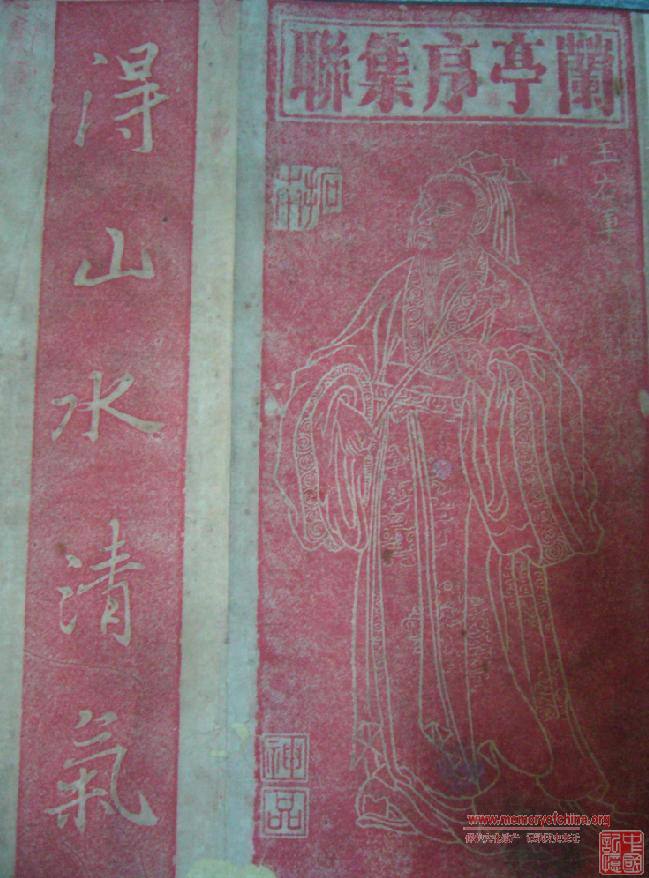 蘭亭序集聯
王右軍
神品
得山水清氣
www.memoryofchina.org
中國記憶